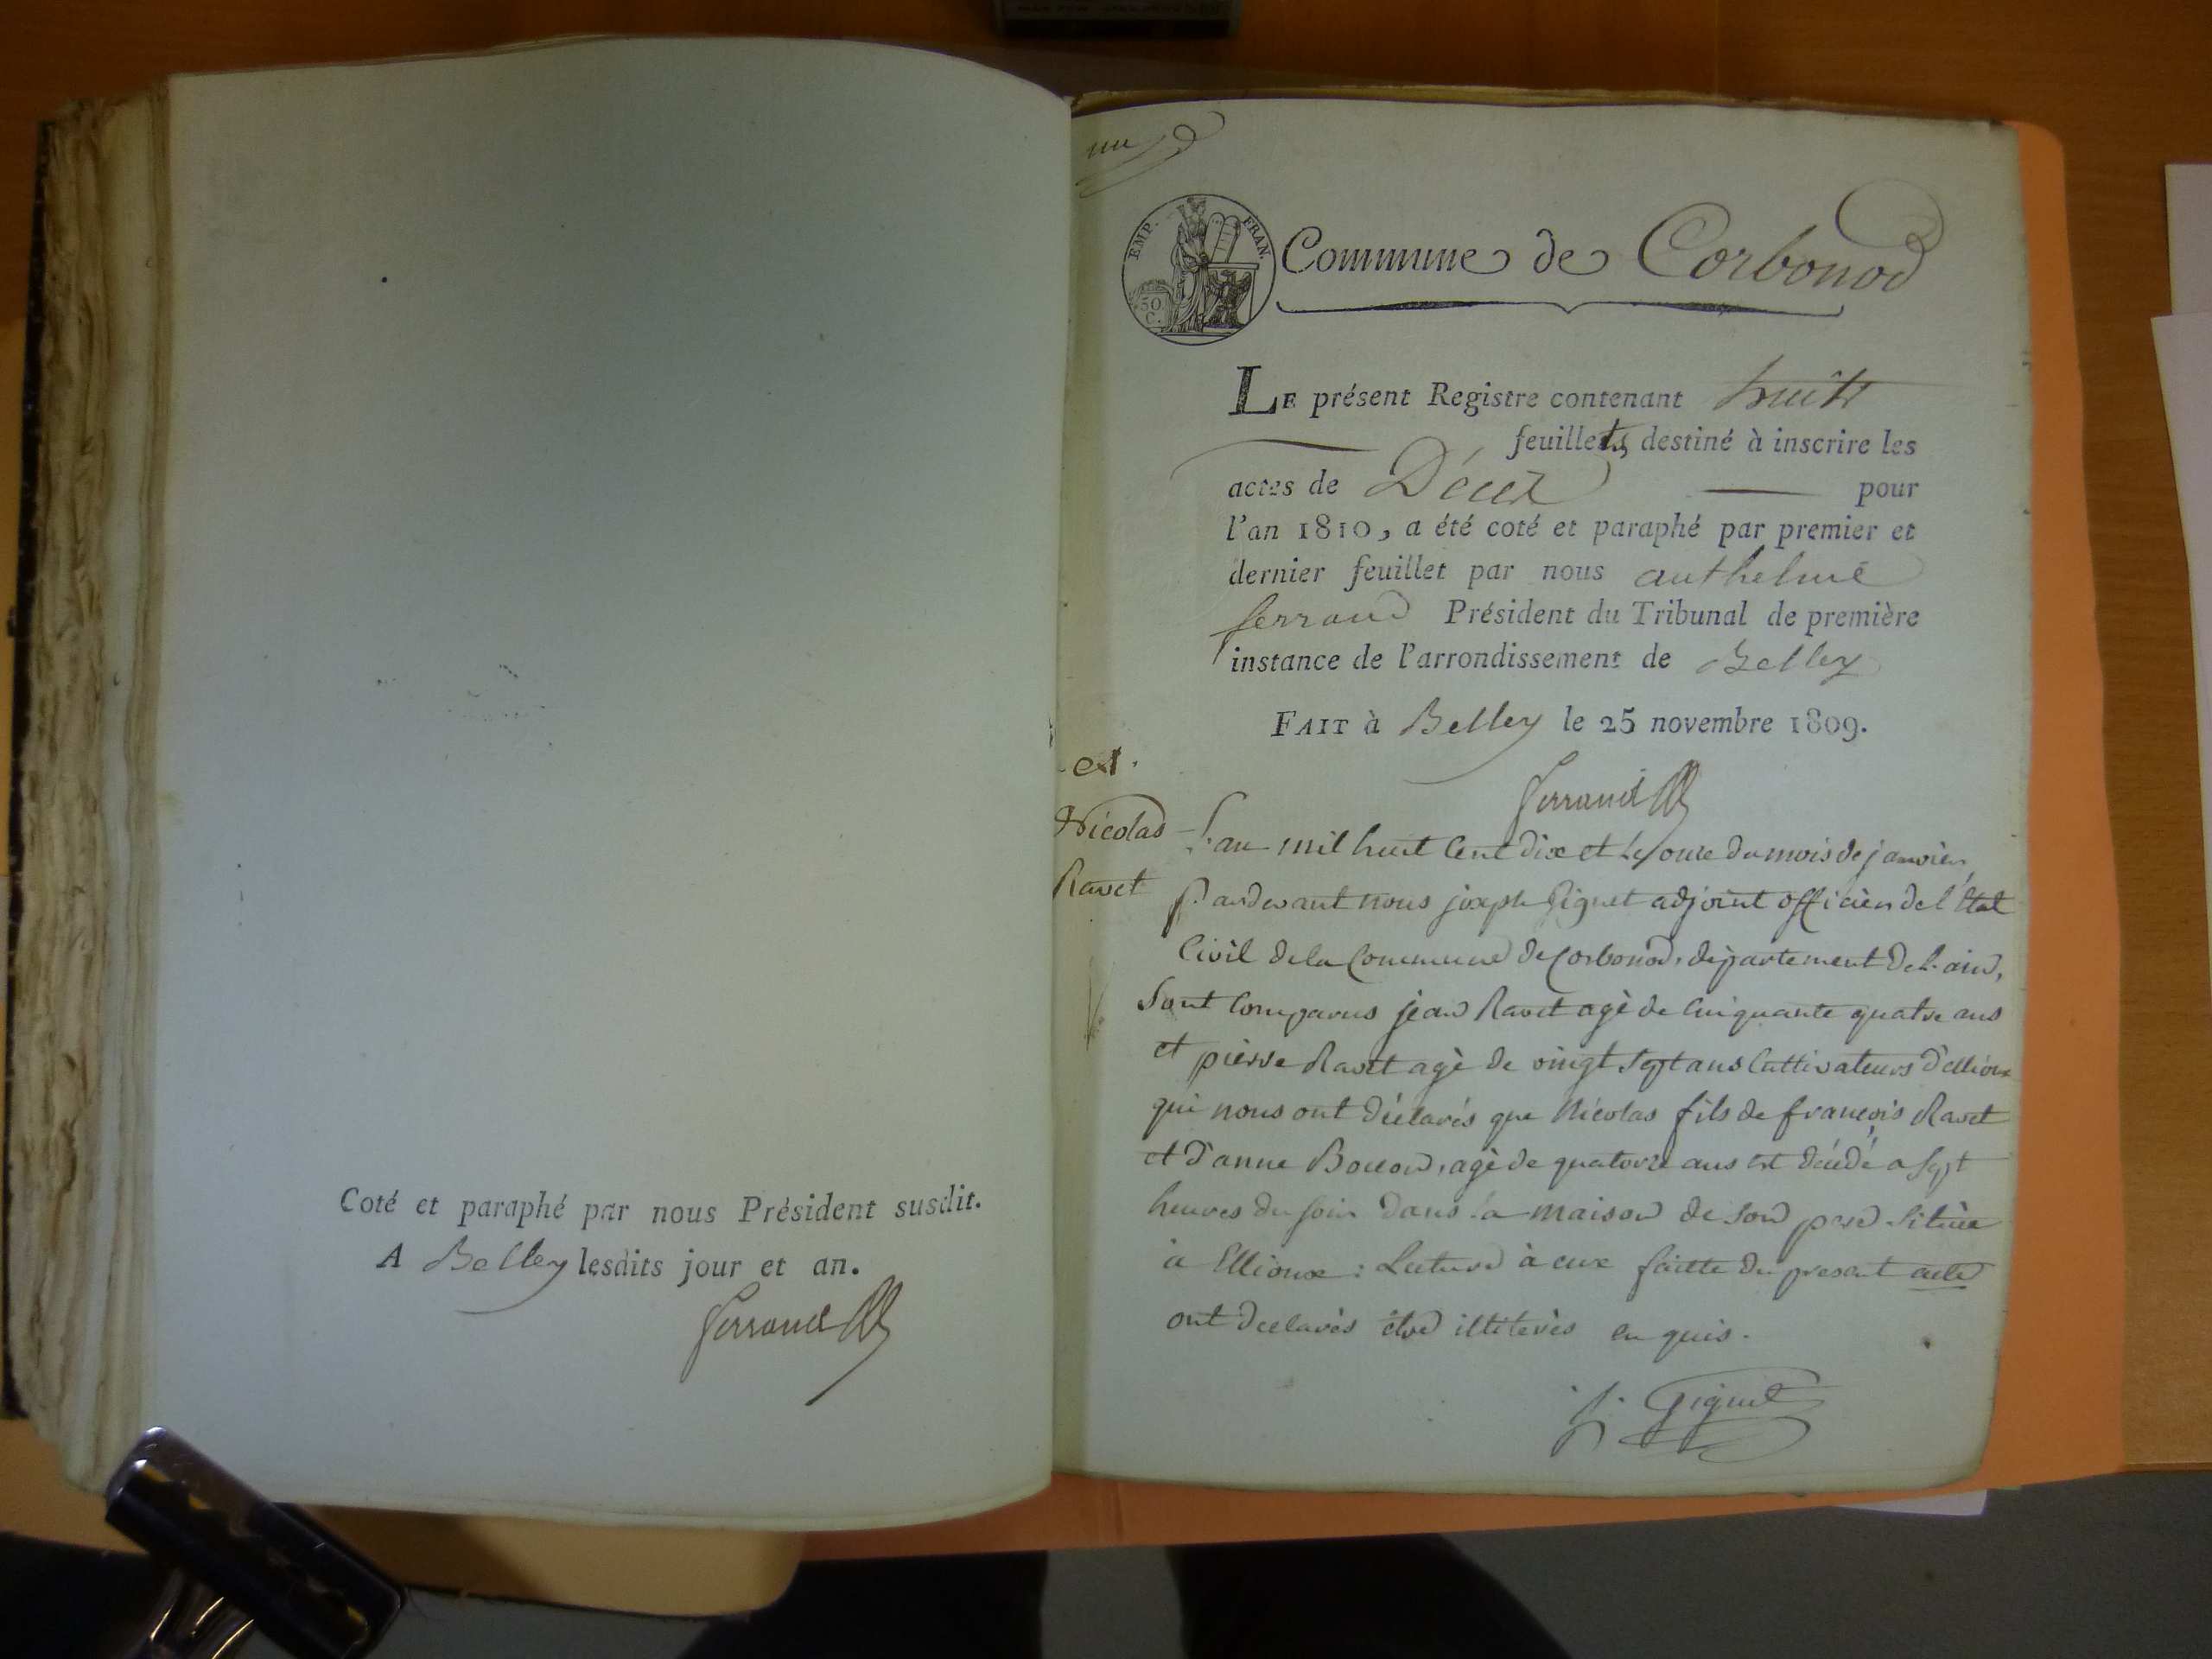 Coté et paraphé par nous Président susdit.
A Belley lesdits jour et an.
Ferrand
un
EMP. FRAN.
50
C.
Commune de Corbonod
LE présent Registre contenant huit
feuillets, destiné à inscrire les
actes de Décès pour
l'an 1810, a été coté et paraphé par premier et
dernier feuillet par nous anthelme
ferrand Président du Tribunal de première
instance de l'arrondissement de Belley
FAIT à Belley le 25 novembre 1809.
Ferrand
Nicolas
Ravet
L'an mil huit Cent dix et le onze du mois de janvier,
Pardevant nous joseph Gignet adjoint officier de l'Etat
Civil de la Commune de Corbonod, département de l'ain,
Sont Comparus jean Ravet agè de Cinquante quatre ans
et pierre Ravet agè de vingt sept ans Cultivateurs d'Ellioux
qui nous ont déclarés que Nicolas fils de françois Ravet
et d'anne agè de quatorze ans est décédé a sept
heures du soir dans la maison de son pere Située
à Ellioux : Lecture à eux faitte du present acte
ont declarés être illiterès enquis.
j. Gignet